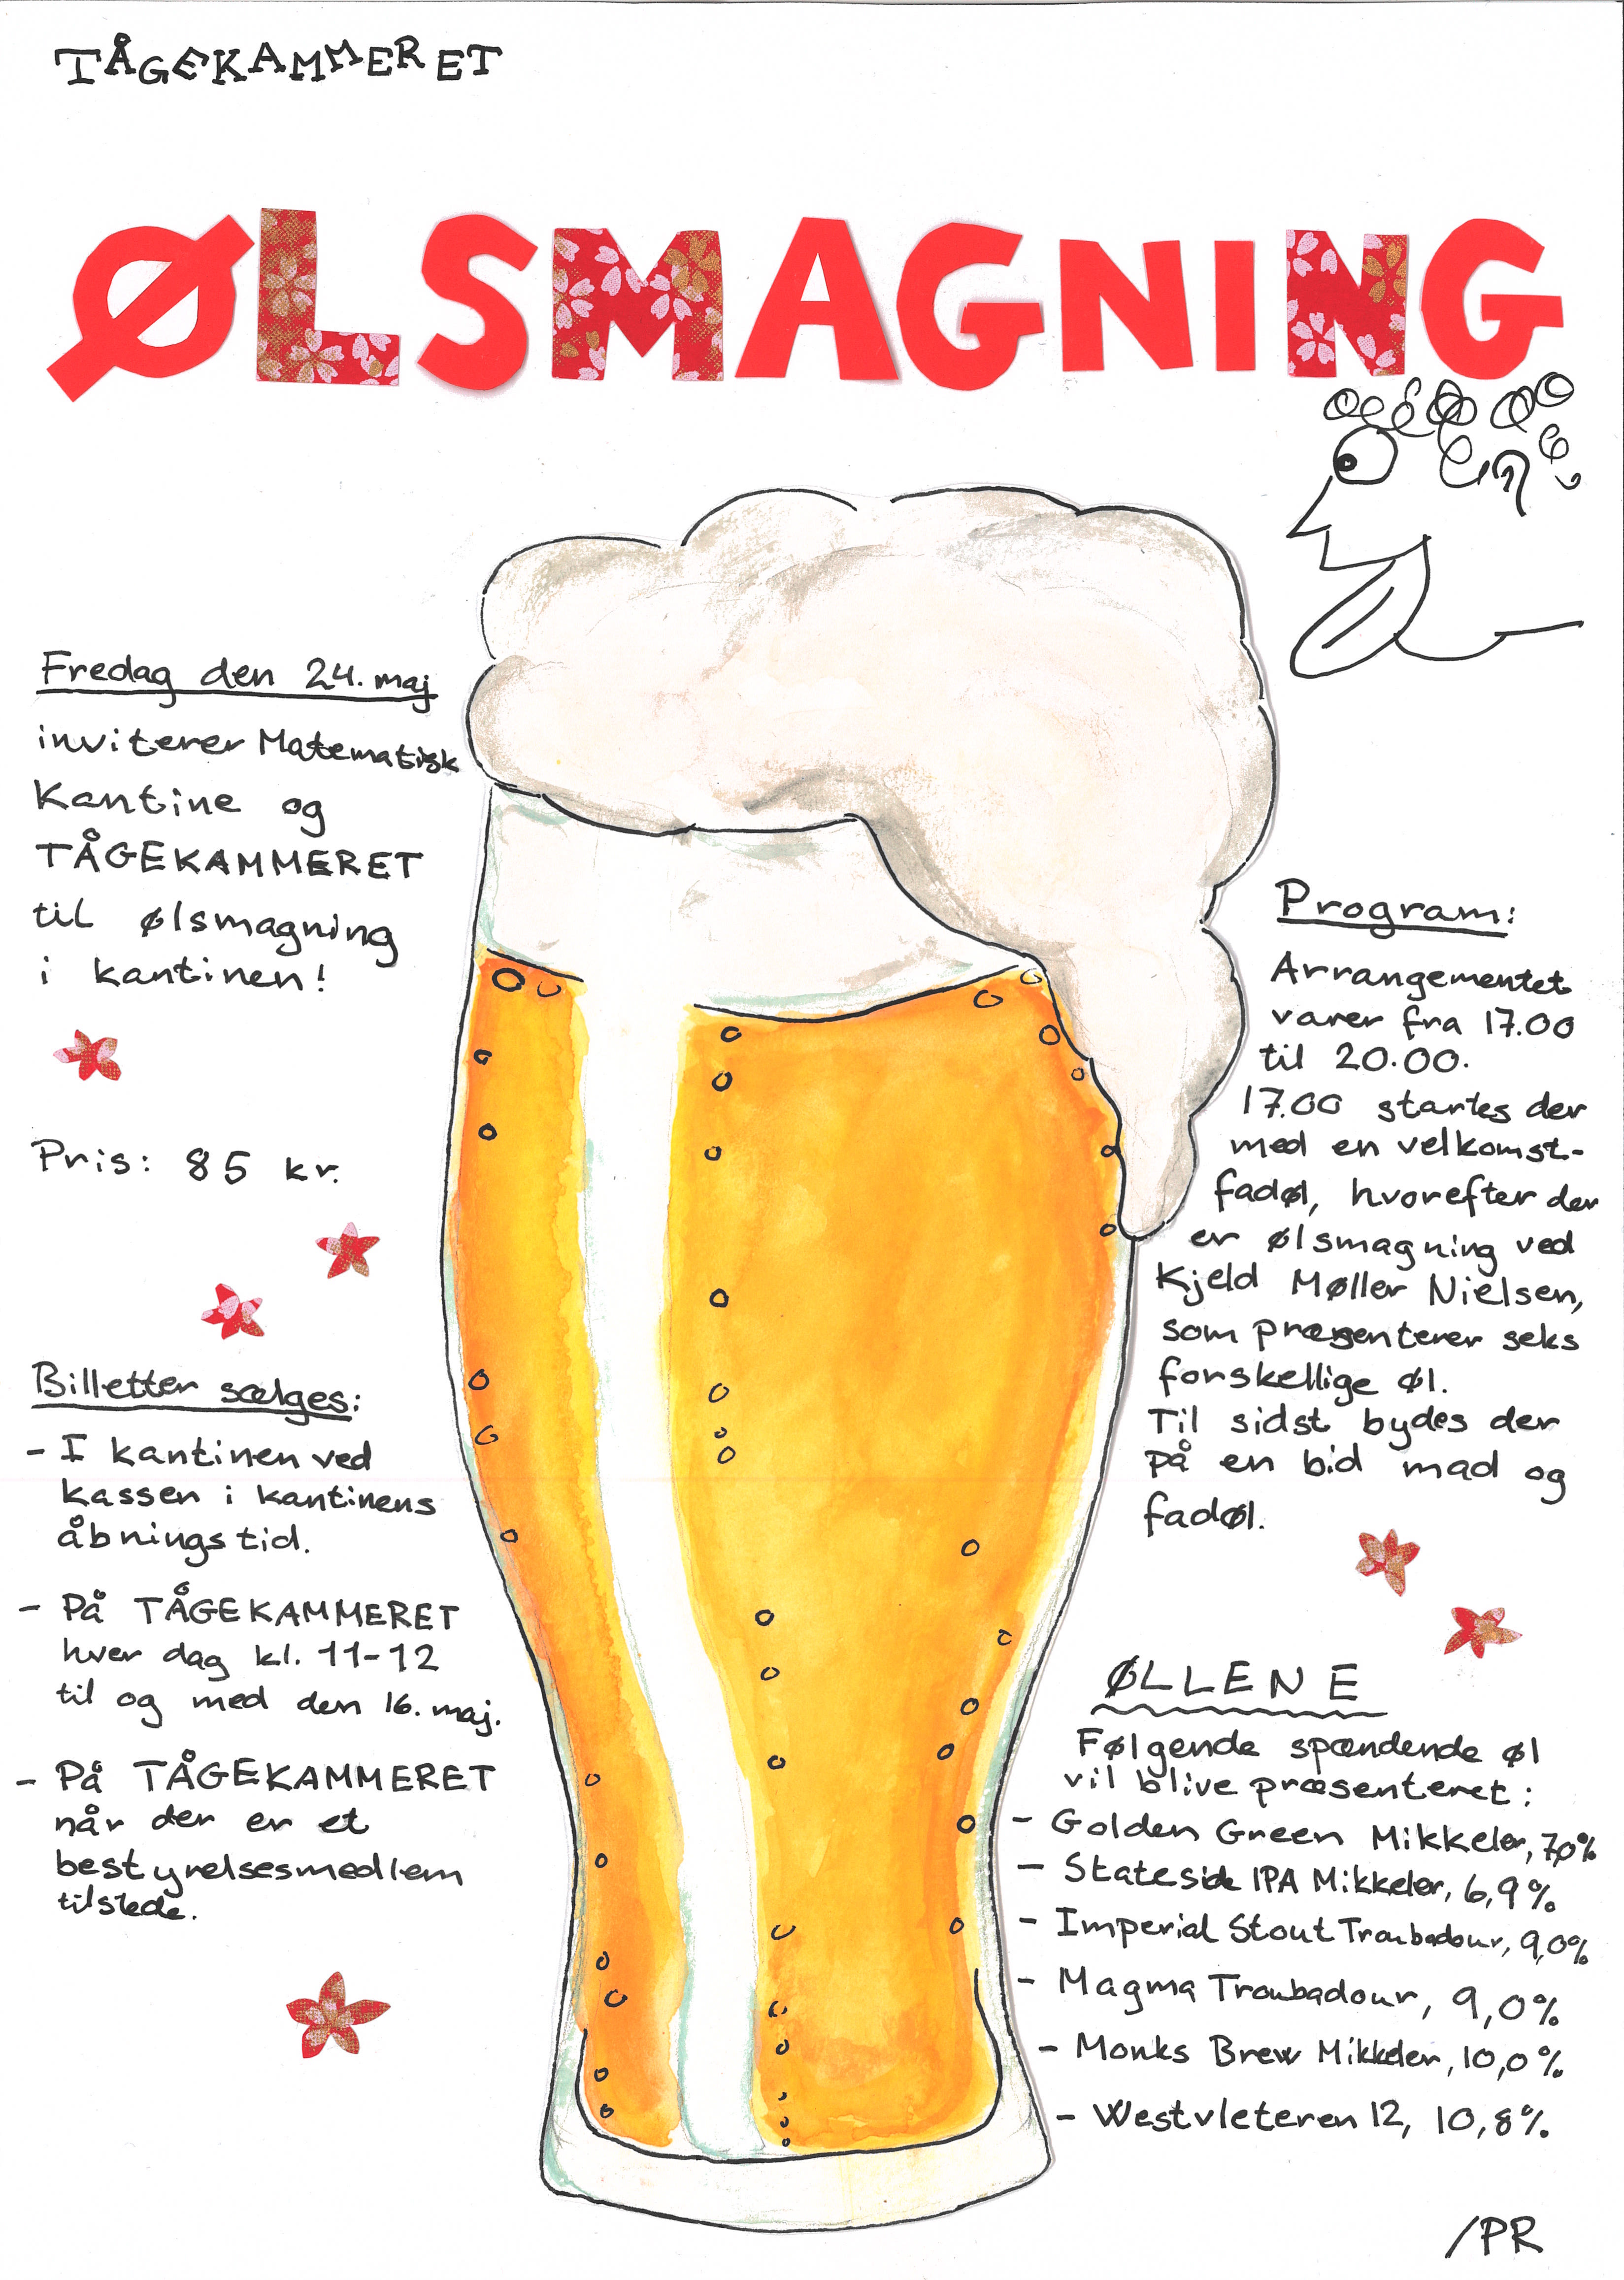 TÅGEKAMMERET
ØLSMAGNING
Fredag den 24. maj
inviterer Matematisk
Kantine og
TÅGEKAMMERET
til ølsmagning
i kantinen!
Pris: 85 kr.
Billetter sælges:
- I kantinen ved
kassen i kantinens
åbningstid.
- På TÅGEKAMMERET
hver dag kl. 11-12
til og med den 16. maj.
- På TÅGEKAMMERET
når der er et
bestyrelsesmedlem
tilstede.
Program:
Arrangementet
varer fra 17.00
til 20.00.
17.00 startes der
med en velkomst-
fadøl, hvorefter der
er ølsmagning ved
Kjeld Møller Nielsen,
som præsenterer seks
forskellige øl.
Til sidst bydes der
på en bid mad og
fadøl.
ØLLENE
Følgende spændende øl
vil blive præsenteret:
- Golden Green Mikkeler, 7,0%
- Stateside IPA Mikkeler, 6,9%
- Imperial Stout Troubadour, 9,0%
- Magma Troubadour, 9,0%
- Monks Brew Mikkeler, 10,0%
- Westvleteren 12, 10,8%
/PR